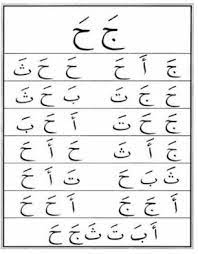 جَ حَ
جَ أَ حَ حَ حَ ثَ
جَ جَ تَ بَ حَ حَ
جَ جَ تَ أَ حَ بَ
جَ أَ ثَ حَ أَ حَ
ثَ بَ حَ تَ أَ حَ
أَ جَ جَ أَ حَ حَ
أَ بَ تَ ثَ جَ حَ